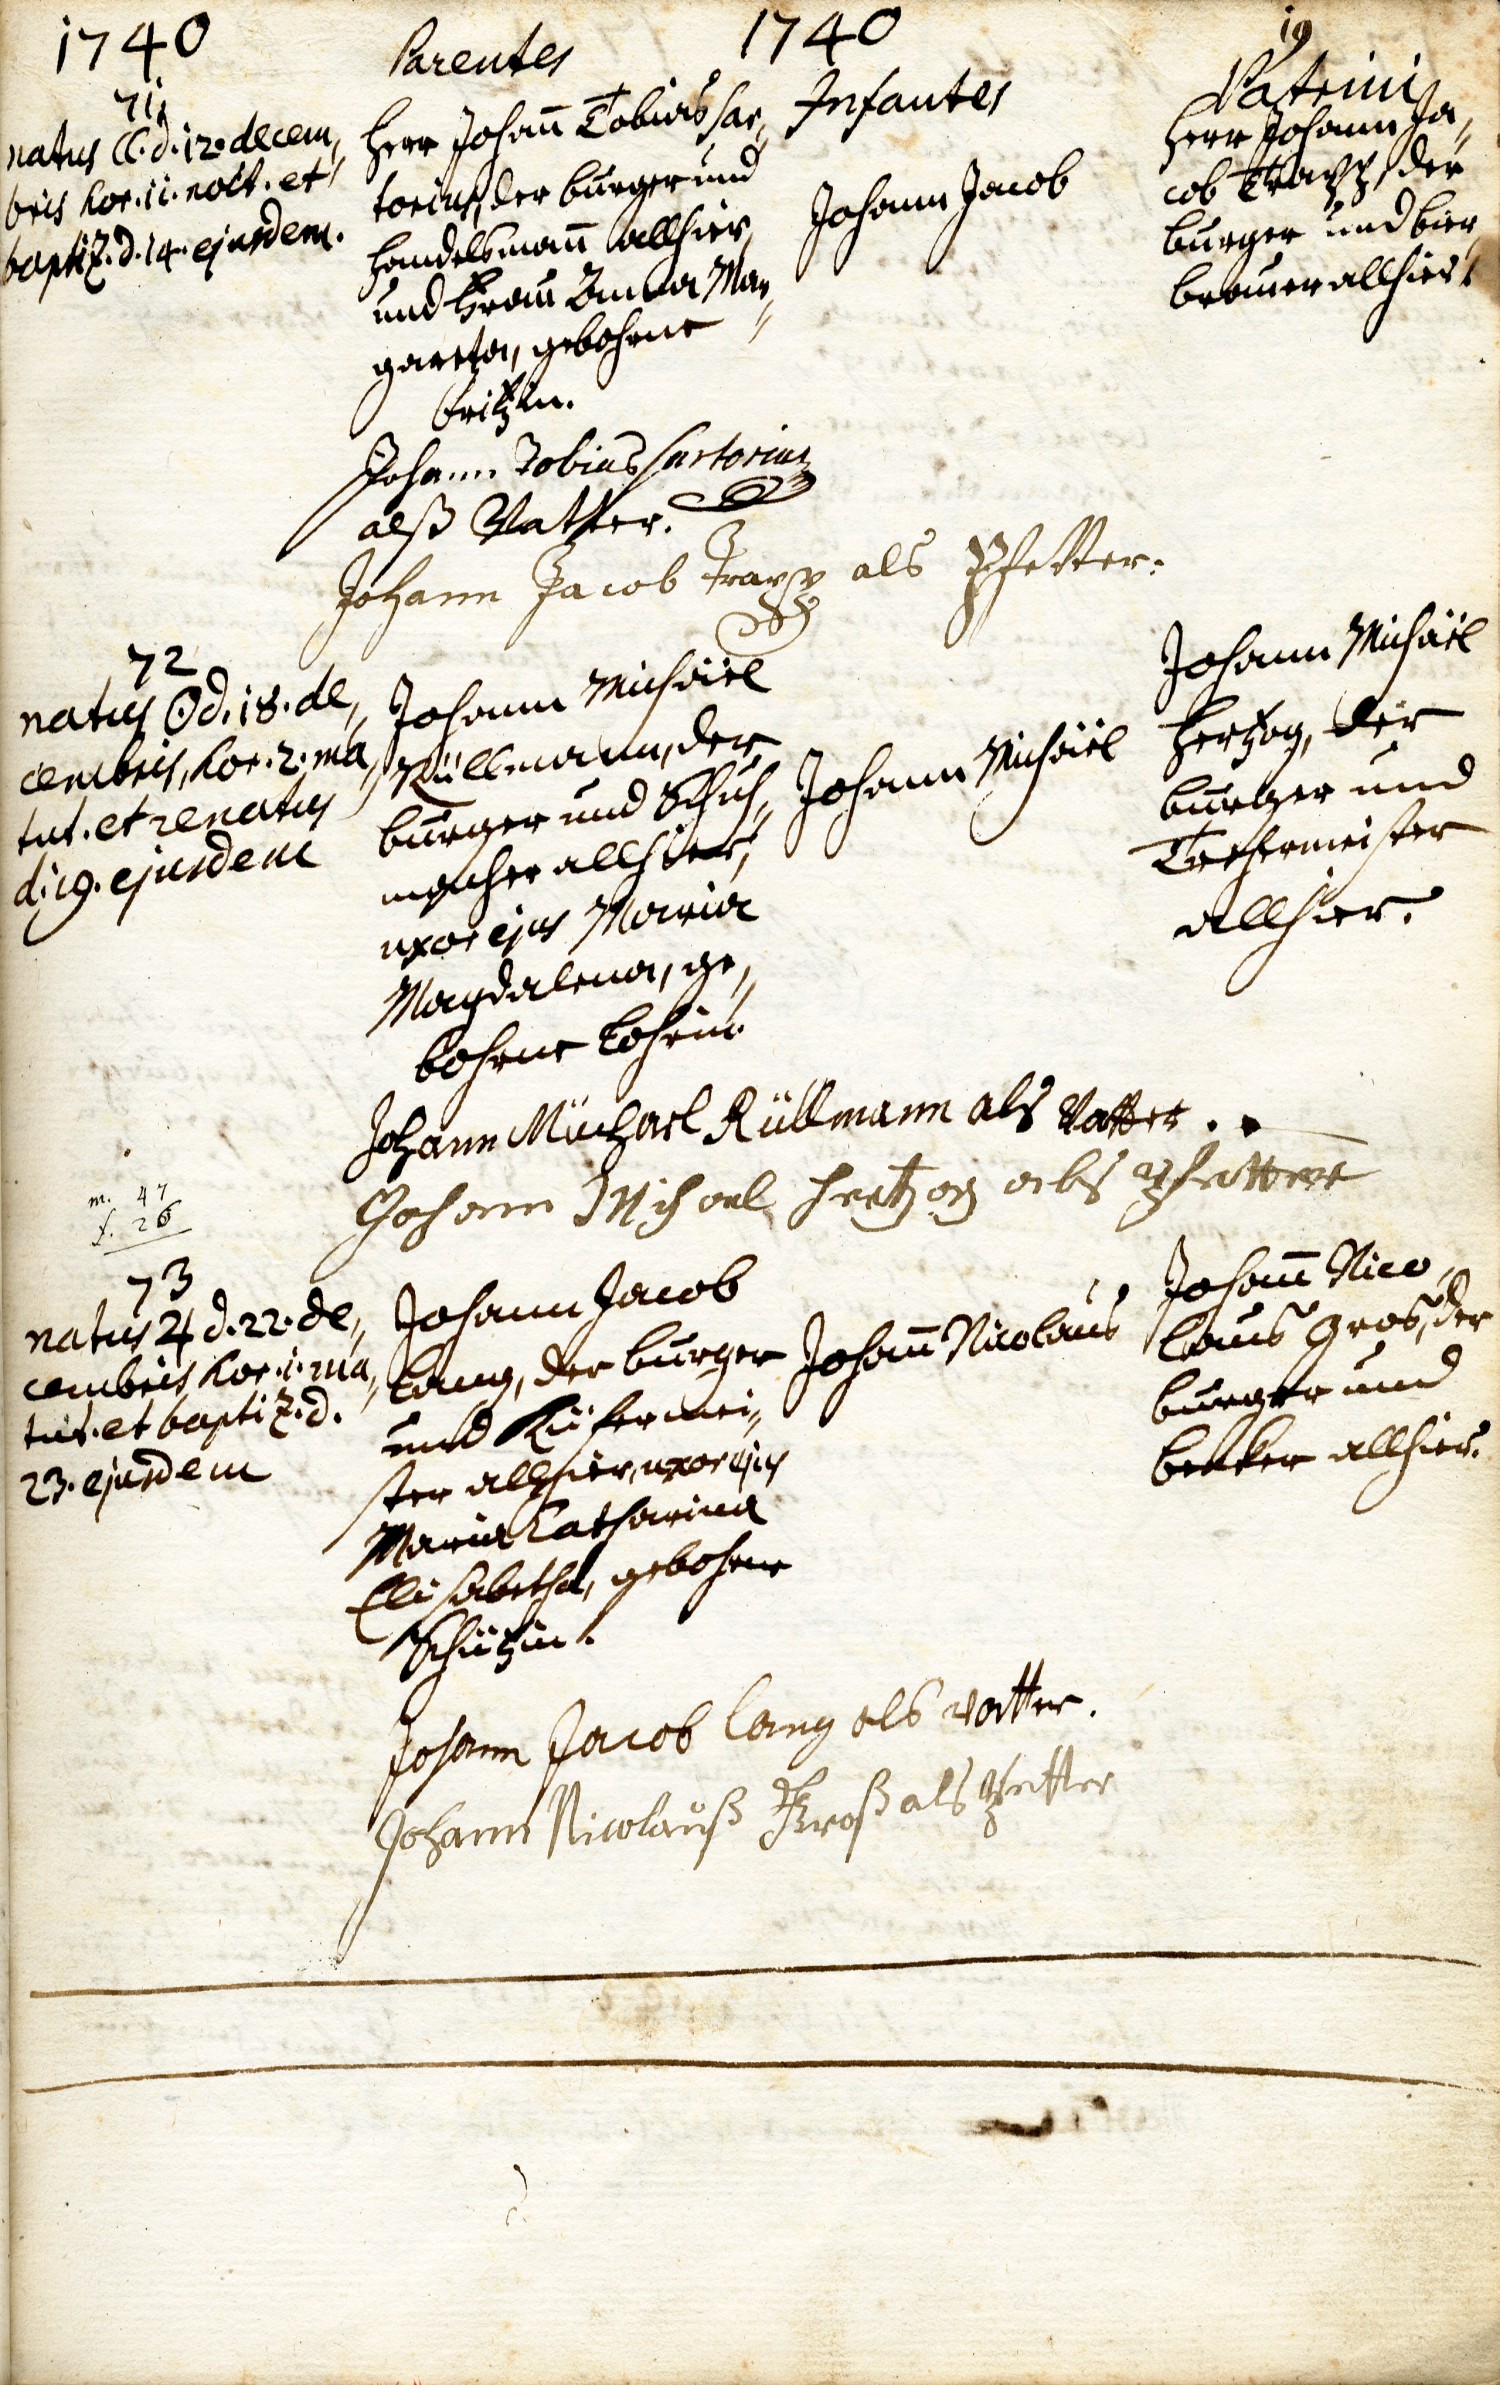 1740
1740
19
Parentes
Infantes
Patrini
71,
natus ☾. d. 12. decem,
bris hor. 11. noct. et
baptiz. d. 14. ejusdem.
Herr Johan̅ Tobias Sar,
torius, der burger und
handelsman̅ allhier,
und Frau Anna Mar,
gareta, gebohrne
Fritzin.
Johann Jacob
Herr Johann Ja,
cob Trapp, der
burger und bier,
brauer allhier.
Johann Tobias Sartorius
alß Vatter.
Johann Jacob Trapp als Pfetter.
72
natus ☉ d. 18. de,
cembris, hor. 2. ma,
tut. et renatus
d. 19. ejusdem
Johann Michäel
Rüllmann, der
burger und Schuh,
macher allhier,
uxor ejus Maria
Magdalena, ge,
bohrne Lohrin.
Johann Michäel
Johann Michäel
Hertzog, der
burger und
allhier.
Johann Müchael Rüllmann als Vatter.
Johann Michael Hertzog als Pfetter
m. 47
f. 26
73
natus ♃ d. 22. de,
cembris hor. 1. ma,
tut. et baptiz. d.
23. ejusdem
Johann Jacob
Lang, der burger
und Küfermei,,
ster allhier, uxor ejus
Maria Catharina
Elisabetha, gebohrne
Schützin.
Johan̅ Nicolaus
Johan̅ Nico,
laus Gros, der
burger und
becker allhier.
Johann Jacob Lang als Vatter.
Johann Nicolauß Kroß als Pfetter